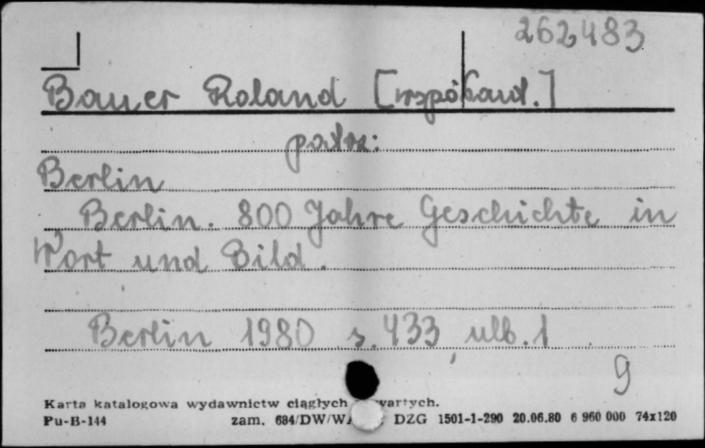 262483
Bauer Roland [współaut.]
patrz:
Berlin
Berlin. 800 Jahre Geschichte in
Wort und Bild.
Berlin 1980 s. 433, ulb. 1
9
Karta katalogowa wydawnictw ciągłych wartych.
Pu-B-144 zam. 684/DW/W DZG 1501-1-290 20.06.80 6 960 000 74x120